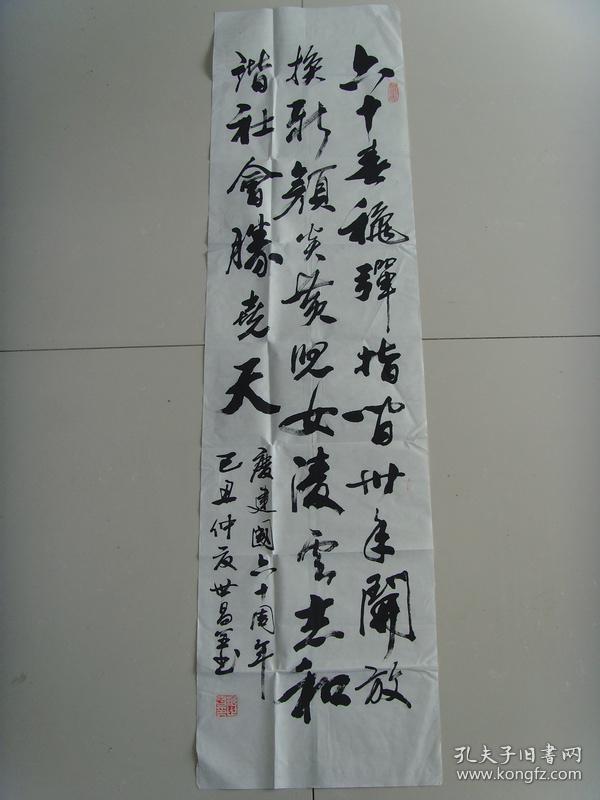 六十春秌彈指間卅年開放
換新顏炎黃児女淩雲志和
諧社會勝堯天
慶建國六十周年
己丑仲夏世昌筆
孔夫子旧书网
www.kongfz.com